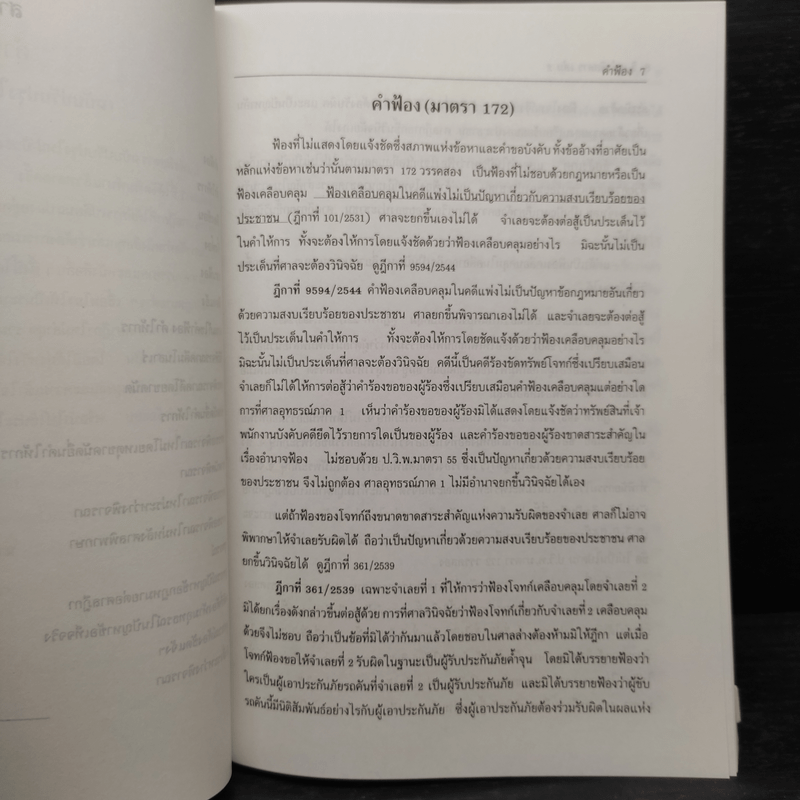 คำฟ้อง 7
คำฟ้อง (มาตรา 172)
ฟ้องที่ไม่แสดงโดยแจ้งชัดซึ่งสภาพแห่งข้อหาและคำขอบังคับ ทั้งข้ออ้างที่อาศัยเป็น
หลักแห่งข้อหาเช่นว่านั้นตามมาตรา 172 วรรคสอง เป็นฟ้องที่ไม่ชอบด้วยกฎหมายหรือเป็น
ฟ้องเคลือบคลุม ฟ้องเคลือบคลุมในคดีแพ่งไม่เป็นปัญหาเกี่ยวกับความสงบเรียบร้อยของ
ประชาชน (ฎีกาที่ 101/2531) ศาลจะยกขึ้นเองไม่ได้ จำเลยจะต้องต่อสู้เป็นประเด็นไว้
ในคำให้การ ทั้งจะต้องให้การโดยแจ้งชัดด้วยว่าฟ้องเคลือบคลุมอย่างไร มิฉะนั้นไม่เป็น
ประเด็นที่ศาลจะต้องวินิจฉัย ดูฎีกาที่ 9594/2544
ฎีกาที่ 9594/2544 คำฟ้องเคลือบคลุมในคดีแพ่งไม่เป็นปัญหาข้อกฎหมายอันเกี่ยว
ด้วยความสงบเรียบร้อยของประชาชน ศาลยกขึ้นพิจารณาเองไม่ได้ และจำเลยจะต้องต่อสู้
ไว้เป็นประเด็นในคำให้การ ทั้งจะต้องให้การโดยชัดแจ้งด้วยว่าคำฟ้องเคลือบคลุมอย่างไร
มิฉะนั้นไม่เป็นประเด็นที่ศาลจะต้องวินิจฉัย คดีนี้เป็นคดีร้องขัดทรัพย์โจทก์ซึ่งเปรียบเสมือน
จำเลยก็ไม่ได้ให้การต่อสู้ว่าคำร้องขอของผู้ร้องซึ่งเปรียบเสมือนคำฟ้องเคลือบคลุมแต่อย่างใด
การที่ศาลอุทธรณ์ภาค 1 เห็นว่าคำร้องขอของผู้ร้องมิได้แสดงโดยแจ้งชัดว่าทรัพย์สินที่เจ้า
พนักงานบังคับคดียึดไว้รายการใดเป็นของผู้ร้อง และคำร้องขอของผู้ร้องขาดสาระสำคัญใน
เรื่องอำนาจฟ้อง ไม่ชอบด้วย ป.วิ.พ.มาตรา 55 ซึ่งเป็นปัญหาเกี่ยวด้วยความสงบเรียบร้อย
ของประชาชน จึงไม่ถูกต้อง ศาลอุทธรณ์ภาค 1 ไม่มีอำนาจยกขึ้นวินิจฉัยได้เอง
แต่ถ้าฟ้องของโจทก์ถึงขนาดขาดสาระสำคัญแห่งความรับผิดของจำเลย ศาลก็ไม่อาจ
พิพากษาให้จำเลยรับผิดได้ ถือว่าเป็นปัญหาเกี่ยวด้วยความสงบเรียบร้อยของประชาชน ศาล
ยกขึ้นวินิจฉัยได้ ดูฎีกาที่ 361/2539
ฎีกาที่ 361/2539 เฉพาะจำเลยที่ 1 ที่ให้การว่าฟ้องโจทก์เคลือบคลุมโดยจำเลยที่ 2
มิได้ยกเรื่องดังกล่าวขึ้นต่อสู้ด้วย การที่ศาลวินิจฉัยว่าฟ้องโจทก์เกี่ยวกับจำเลยที่ 2 เคลือบคลุม
ด้วยจึงไม่ชอบ ถือว่าเป็นข้อที่มิได้ว่ากันมาแล้วโดยชอบในศาลล่างต้องห้ามมิให้ฎีกา แต่เมื่อ
โจทก์ฟ้องขอให้จำเลยที่ 2 รับผิดในฐานะเป็นผู้รับประกันภัยค้ำจุน โดยมิได้บรรยายฟ้องว่า
ใครเป็นผู้เอาประกันภัยรถคันที่จำเลยที่ 2 เป็นผู้รับประกันภัย และมิได้บรรยายฟ้องว่าผู้ขับ
รถคันนี้มีนิติสัมพันธ์อย่างไรกับผู้เอาประกันภัย ซึ่งผู้เอาประกันภัยต้องร่วมรับผิดในผลแห่ง